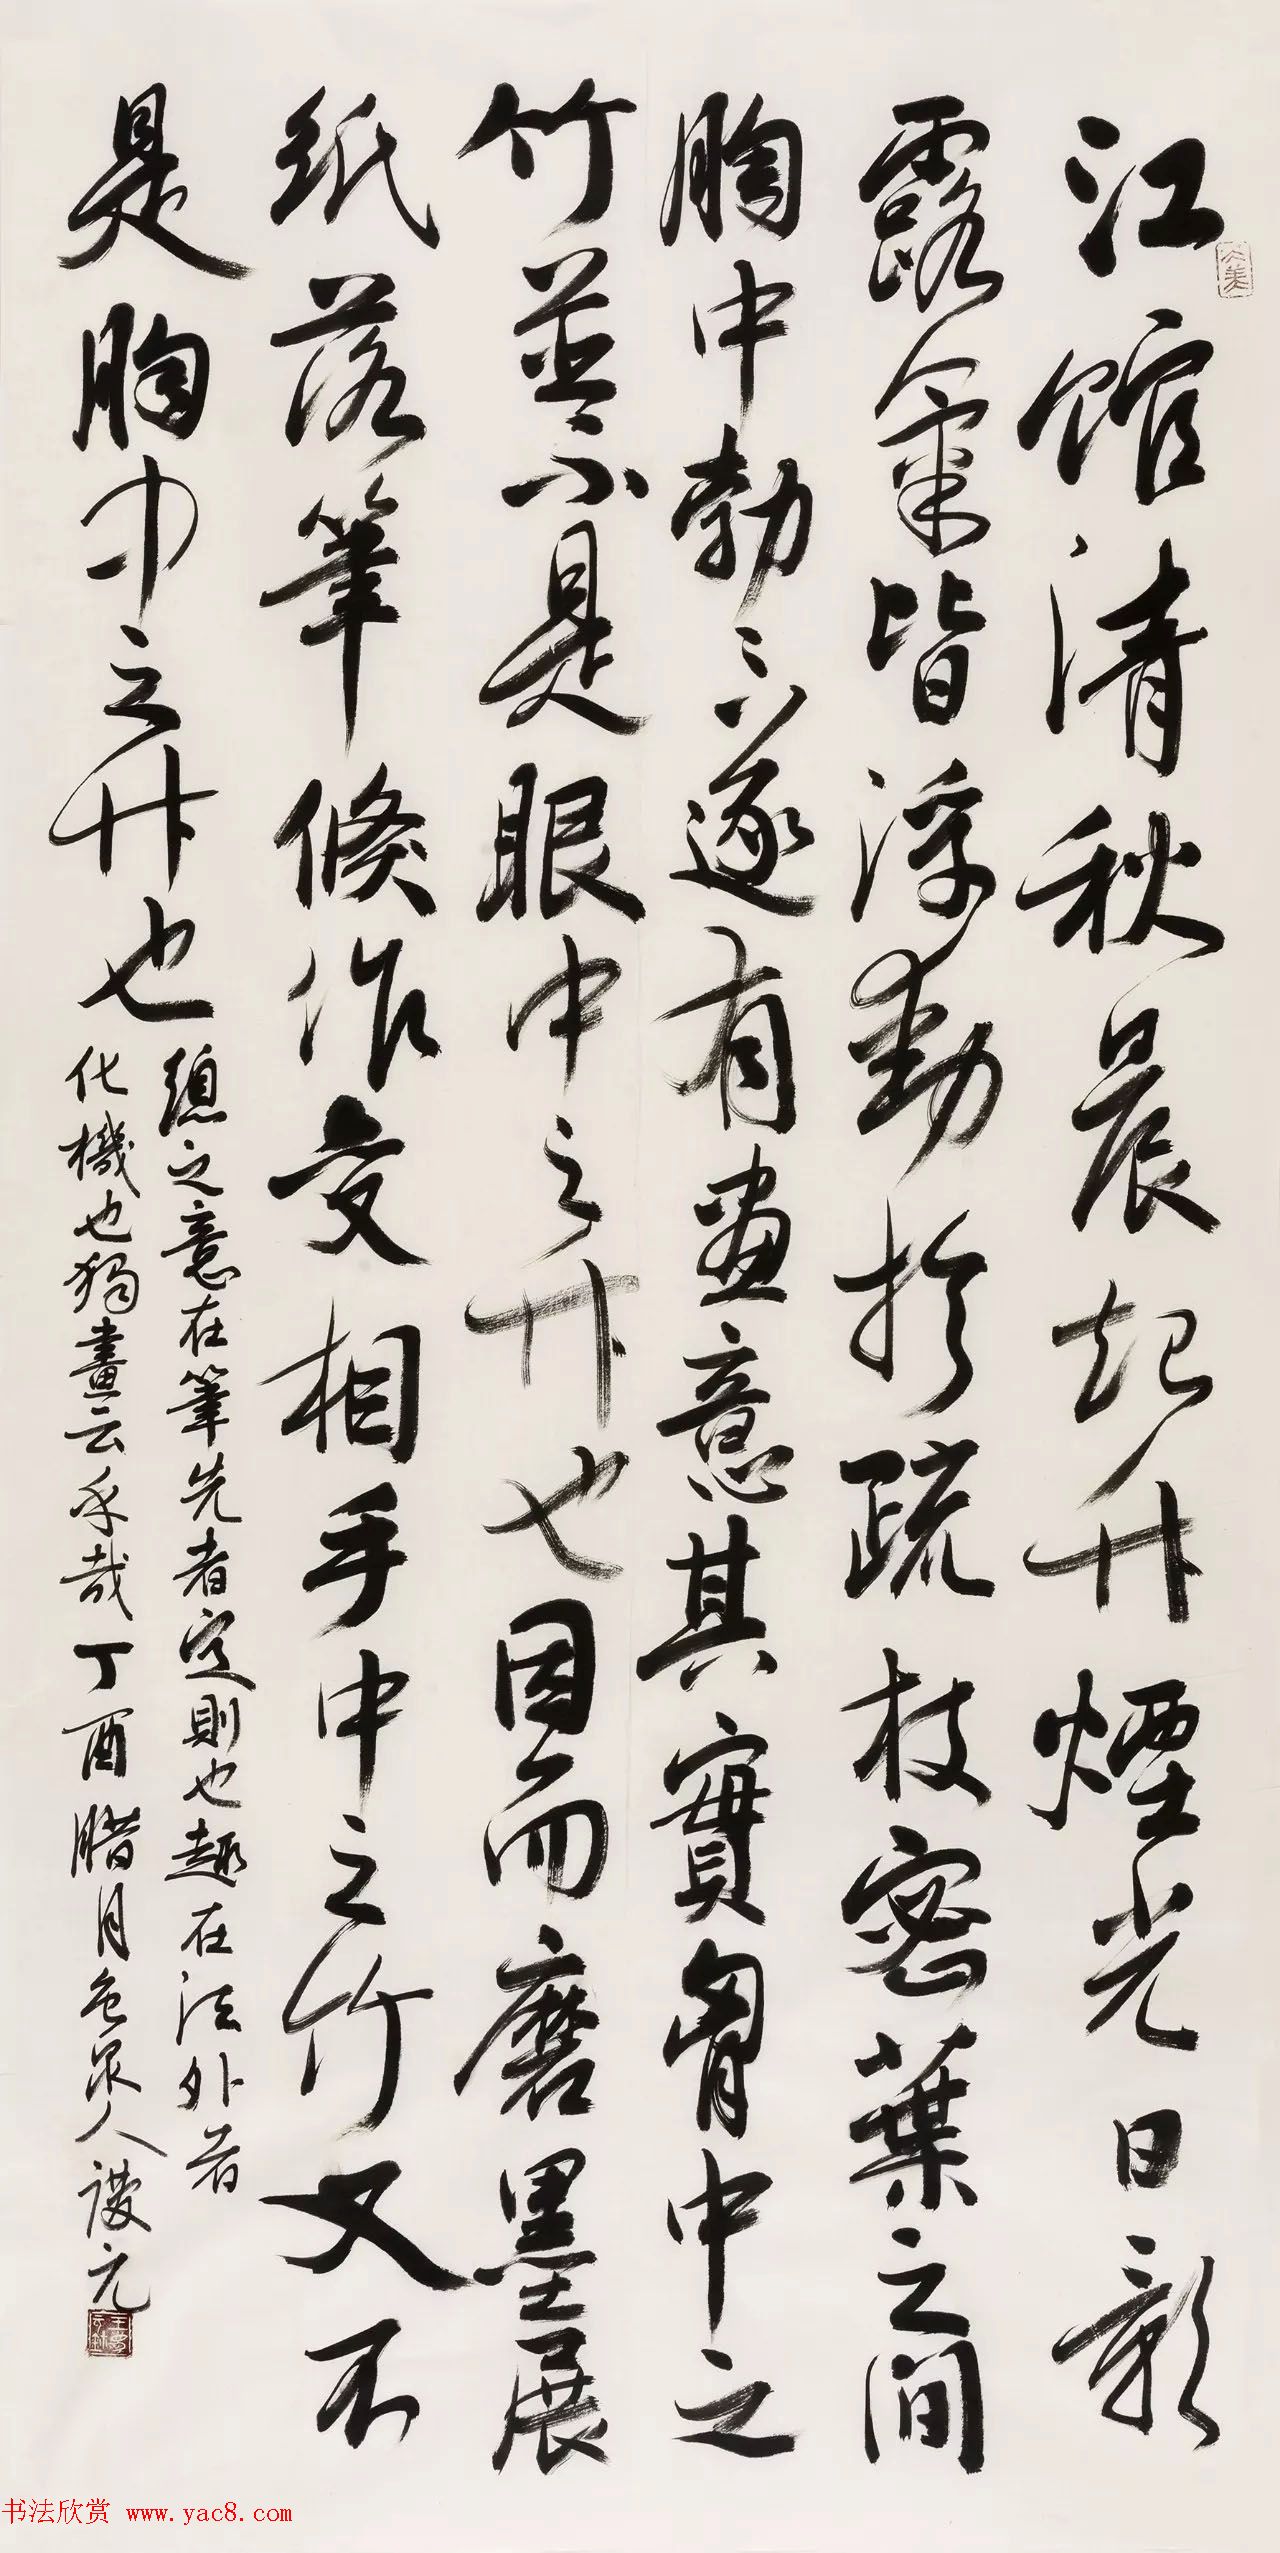 江館清秋晨起竹煙光日影
露氣皆浮動於疏枝密葉之間
胸中勃〻遂有畫意其實胷中之
竹並不是眼中之竹也因而磨墨展
紙落筆倏作变相手中之竹又不
是胸中之竹也
總之意在筆先者定則也趣在法外者
化機也獨畫云乎哉丁酉腊月
书法欣赏 www.yac8.com